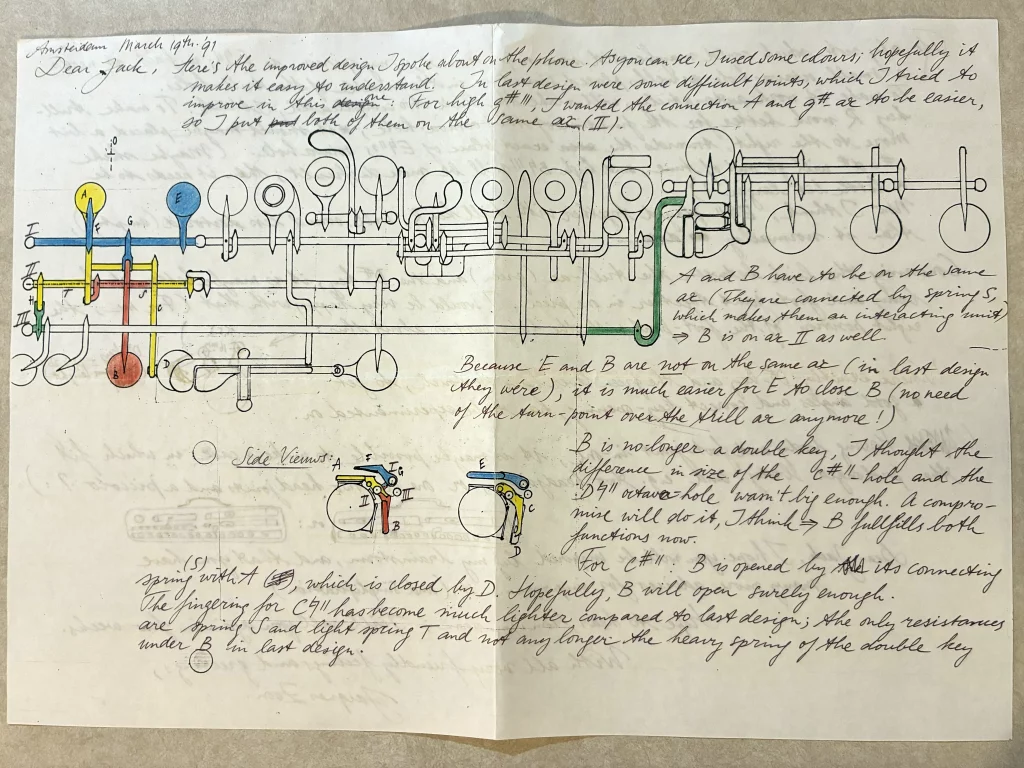 Amsterdam March 19th '91
Dear Jack, Here's the improved design I spoke about on the phone. As you can see, I used some colours; hopefully it
makes it easy to understand. In last design were some difficult points, which I tried to
improve in this design one: For high g#''', I wanted the connection A and g# ax to be easier,
so I put put both of them on the same ax (II).
A
E
F
G
I
II
T
S
H
C
III
B
D
A and B have to be on the same
ax (They are connected by spring S,
which makes them an interacting unit)
⇒ B is on ax II as well.
Because E and B are not on the same ax (in last design
they were), it is much easier for E to close B (no need
of the turn-point over the trill ax anymore!)
B is no longer a double key, I thought the
difference in size of the c#'' hole and the
D♮'' octave-hole wasn't big enough. A compro-
mise will do it, I think ⇒ B fullfills both
functions now.
Side Views:
A
F
I
G
II
III
B
E
C
D
For c#'': B is opened by its connecting
(S)
spring with A, which is closed by D. Hopefully, B will open surely enough.
The fingering for C♮'' has become much lighter compared to last design; the only resistances
are spring S and light spring T and not any longer the heavy spring of the double key
under B in last design.